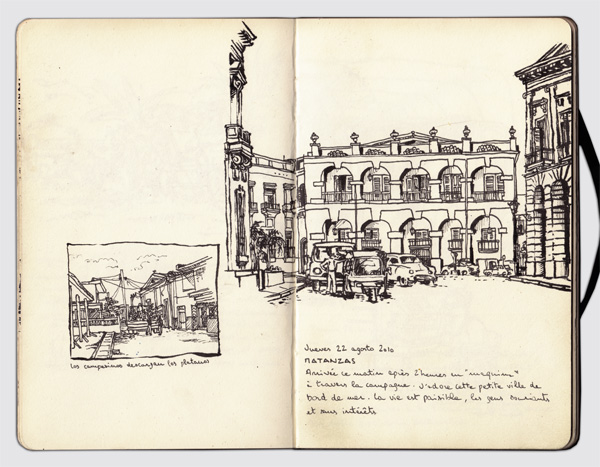 los campesinos descargan los platanos
Jueves 22 agosto 2010
MATANZAS
Arrivée ce matin après 2 heures en "maquina"
à travers la campagne. J'adore cette petite ville de
bord de mer. La vie est paisible, les gens souriants
et sans intérêts